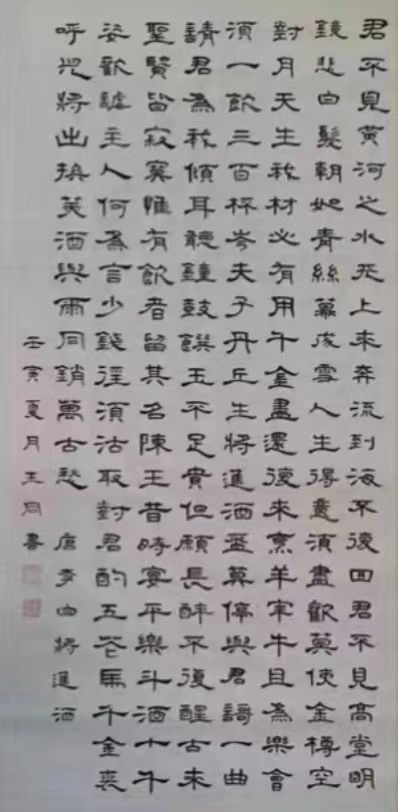 君不見黃河之水天上来奔流到海不復回君不見高堂明
鏡悲白髮朝如青絲暮成雪人生得意須盡歡莫使金樽空
對月天生我材必有用千金盡還復來烹羊宰牛且為樂會
須一飲三百杯岑夫子丹丘生將進酒盃莫停與君謌一曲
請君為我傾耳聽鐘鼓饌玉不足貴但願長醉不復醒古来
聖賢皆寂寞惟有飲者留其名陳王昔時宴平樂斗酒十千
恣歡謔主人何為言少錢徑須沽取對君酌五花馬千金裘
呼兒將出換美酒與爾同銷萬古愁 唐李白將進酒
壬寅夏月王同書